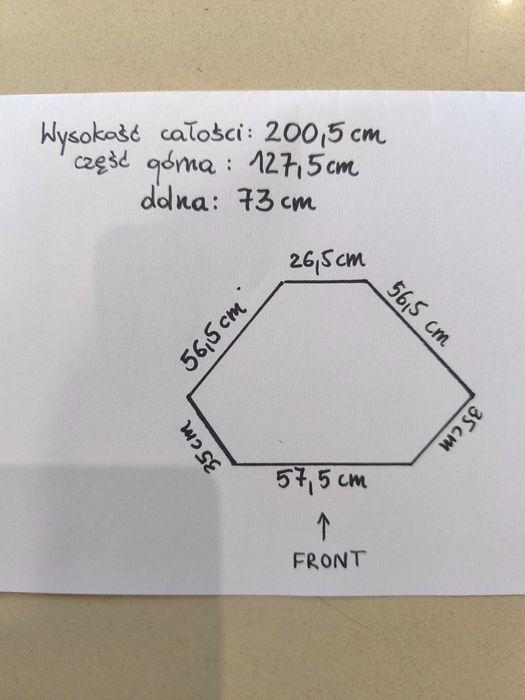 Wysokość całości: 200,5 cm
część górna: 127,5 cm
dolna: 73 cm
26,5 cm
56,5 cm
56,5 cm
35 cm
35 cm
57,5 cm
FRONT